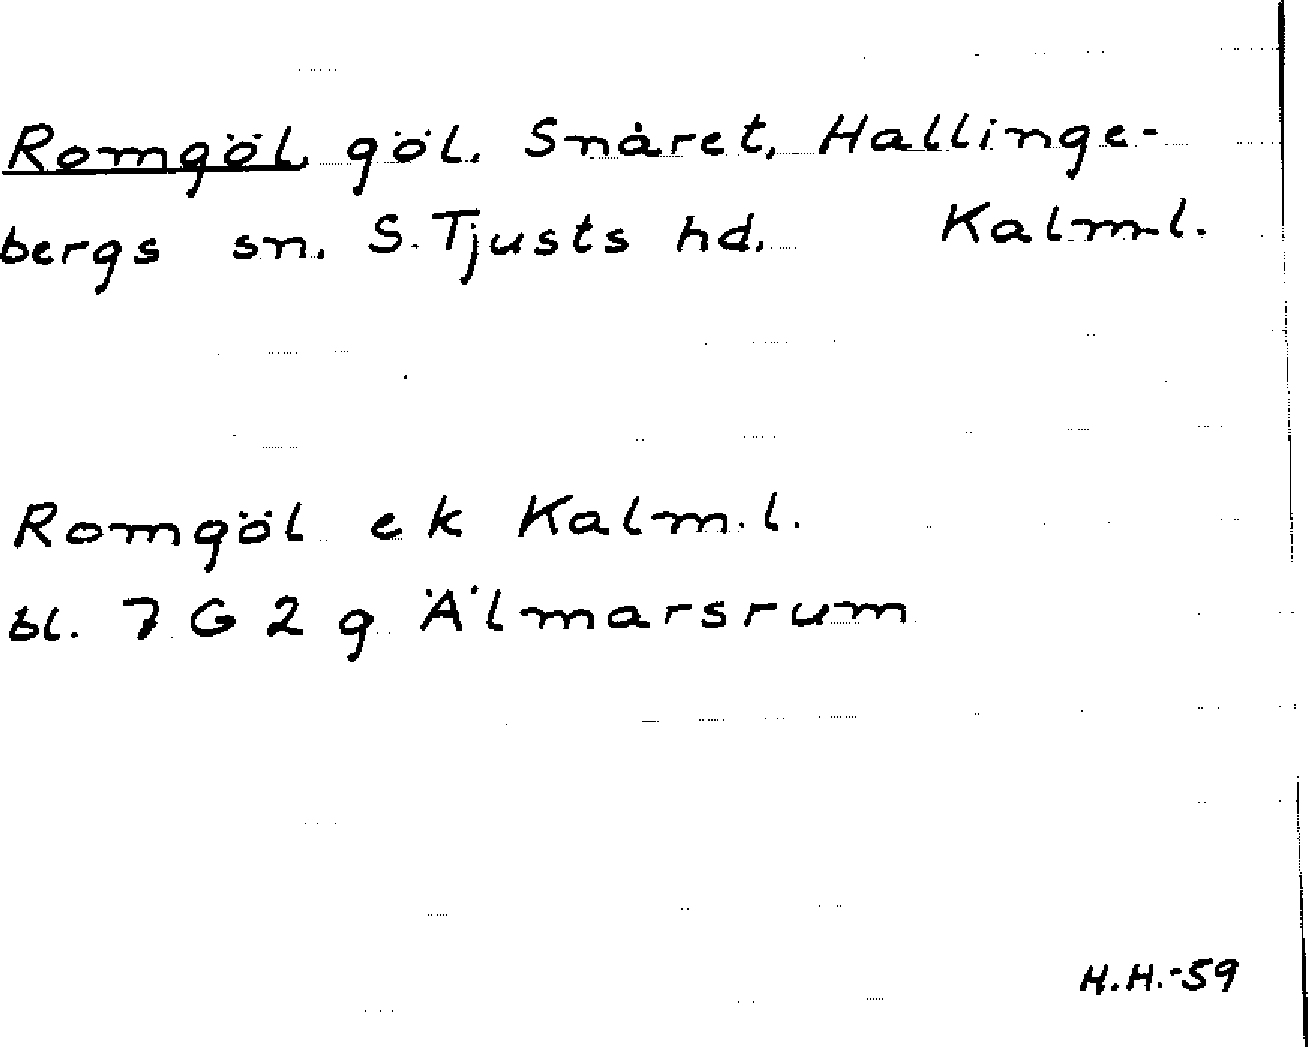 Romgöl, göl. Snåret, Hallinge-
bergs sn. S. Tjusts hd. Kalm.l.
Romgöl ek Kalm.l.
bl. 7 G 2 g Älmarsrum
H.H.-59